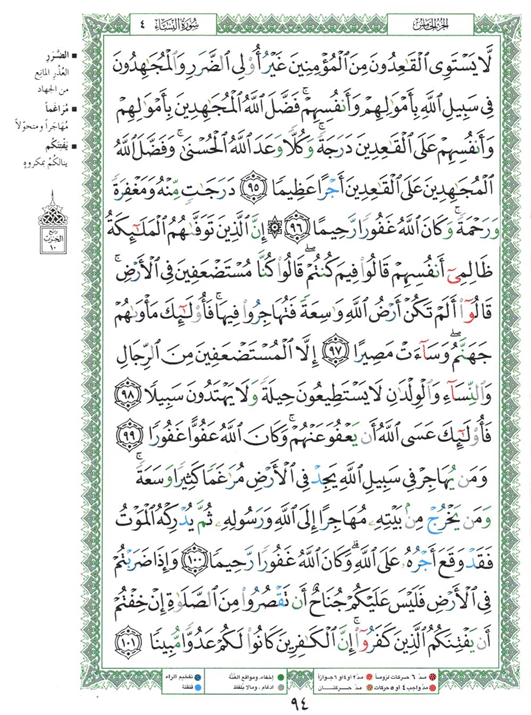 الجزء الخامس
سورة النساء ٤
لَّا يَسْتَوِي الْقَاعِدُونَ مِنَ الْمُؤْمِنِينَ غَيْرُ أُولِي الضَّرَرِ وَالْمُجَاهِدُونَ
فِي سَبِيلِ اللَّهِ بِأَمْوَالِهِمْ وَأَنفُسِهِمْ ۚ فَضَّلَ اللَّهُ الْمُجَاهِدِينَ بِأَمْوَالِهِمْ
وَأَنفُسِهِمْ عَلَى الْقَاعِدِينَ دَرَجَةً ۚ وَكُلًّا وَعَدَ اللَّهُ الْحُسْنَىٰ ۚ وَفَضَّلَ اللَّهُ
الْمُجَاهِدِينَ عَلَى الْقَاعِدِينَ أَجْرًا عَظِيمًا ﴿٩٥﴾ دَرَجَاتٍ مِّنْهُ وَمَغْفِرَةً
وَرَحْمَةً ۚ وَكَانَ اللَّهُ غَفُورًا رَّحِيمًا ﴿٩٦﴾ ۞ إِنَّ الَّذِينَ تَوَفَّاهُمُ الْمَلَائِكَةُ
ظَالِمِي أَنفُسِهِمْ قَالُوا فِيمَ كُنتُمْ ۖ قَالُوا كُنَّا مُسْتَضْعَفِينَ فِي الْأَرْضِ ۚ
قَالُوا أَلَمْ تَكُنْ أَرْضُ اللَّهِ وَاسِعَةً فَتُهَاجِرُوا فِيهَا ۚ فَأُولَٰئِكَ مَأْوَاهُمْ
جَهَنَّمُ ۖ وَسَاءَتْ مَصِيرًا ﴿٩٧﴾ إِلَّا الْمُسْتَضْعَفِينَ مِنَ الرِّجَالِ
وَالنِّسَاءِ وَالْوِلْدَانِ لَا يَسْتَطِيعُونَ حِيلَةً وَلَا يَهْتَدُونَ سَبِيلًا ﴿٩٨﴾
فَأُولَٰئِكَ عَسَى اللَّهُ أَن يَعْفُوَ عَنْهُمْ ۚ وَكَانَ اللَّهُ عَفُوًّا غَفُورًا ﴿٩٩﴾
وَمَن يُهَاجِرْ فِي سَبِيلِ اللَّهِ يَجِدْ فِي الْأَرْضِ مُرَاغَمًا كَثِيرًا وَسَعَةً ۚ
وَمَن يَخْرُجْ مِن بَيْتِهِ مُهَاجِرًا إِلَى اللَّهِ وَرَسُولِهِ ثُمَّ يُدْرِكْهُ الْمَوْتُ
فَقَدْ وَقَعَ أَجْرُهُ عَلَى اللَّهِ ۗ وَكَانَ اللَّهُ غَفُورًا رَّحِيمًا ﴿١٠٠﴾ وَإِذَا ضَرَبْتُمْ
فِي الْأَرْضِ فَلَيْسَ عَلَيْكُمْ جُنَاحٌ أَن تَقْصُرُوا مِنَ الصَّلَاةِ إِنْ خِفْتُمْ
أَن يَفْتِنَكُمُ الَّذِينَ كَفَرُوا ۚ إِنَّ الْكَافِرِينَ كَانُوا لَكُمْ عَدُوًّا مُّبِينًا ﴿١٠١﴾
■ الضَّرَرِ
العُذْرِ المانِعِ
من الجهاد
■ مُرَاغَماً
مُهَاجَراً ومُتحوّلاً
■ يَفْتِنَكُمْ
ينالَكُمْ بمكروهٍ
ربع
الحزب
١٠
مدّ ٦ حركات لزوماً
مدّ ٢ أو ٤ أو ٦ جوازاً
إخفاء، ومواقع الغُنَّة
تفخيم الراء
مدّ واجب ٤ أو ٥ حركات
مدّ حركتان
ادغام، وما لا يُلفظ
قلقلة
٩٤